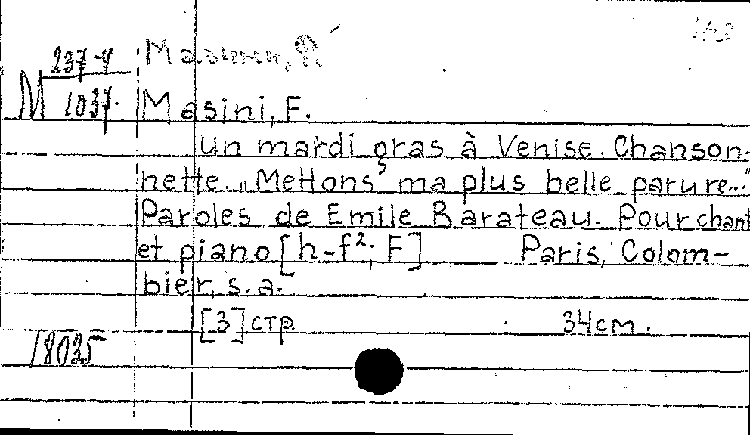 237-4
M 1037.
Masini, F.
Un mardi gras à Venise. Chanson-
nette. „Mettons ma plus belle parure..."
Paroles de Emile Barateau. Pour chant
et piano [h-f²; F] Paris, Colom-
bier, s.a.
[3] стр. 34 см.
18035